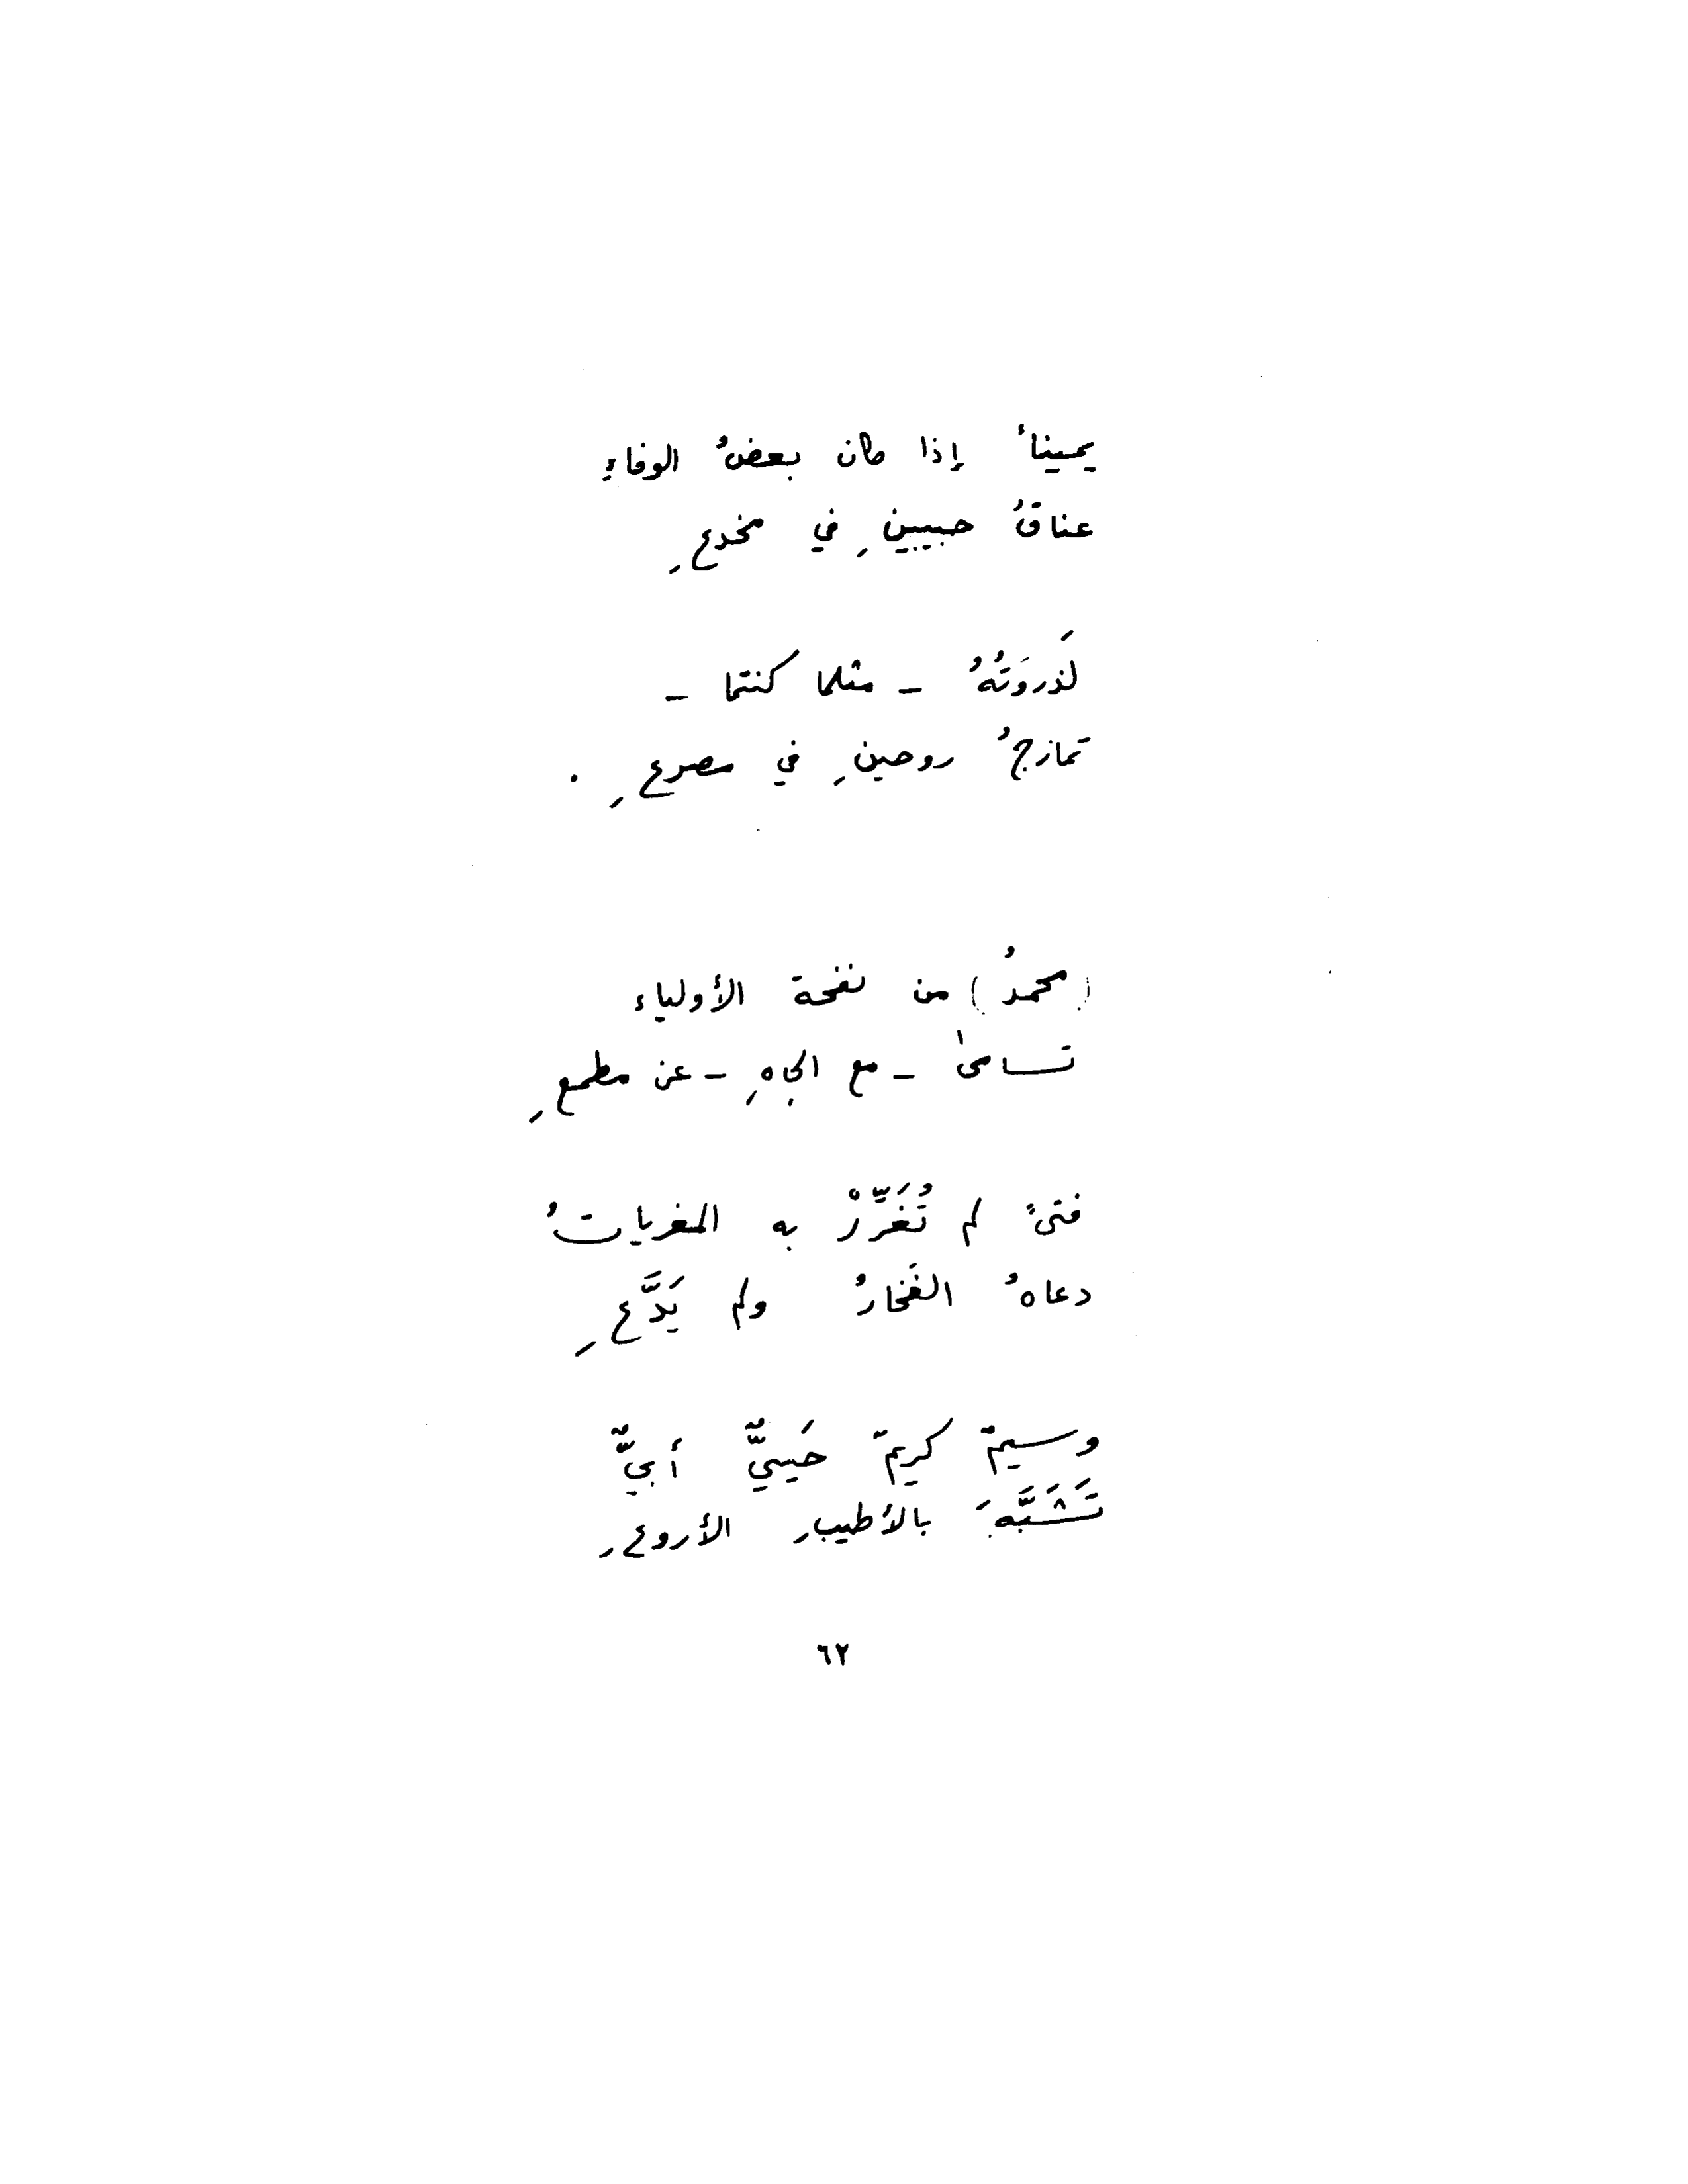 يميناً إذا كان بعضُ الوفاءِ
عناقُ حبيبينِ في مخدعِ
لَذروَتُهُ – مثلما كنتما –
تمازجُ روحينِ في مصرعِ .
(محمدُ) من نفحة الأولياء
تسامىٰ – مع الجاهِ – عن مطمعِ
فتىً لم تُغَرِّرْ به المغرياتُ
دعاهُ الفَخارُ ولم يَدَّعِ
وسيمٌ كريمٌ حَييٌّ أبيٌّ
تَشَبَّهَ بالأطيبِ الأروعِ
٦٢